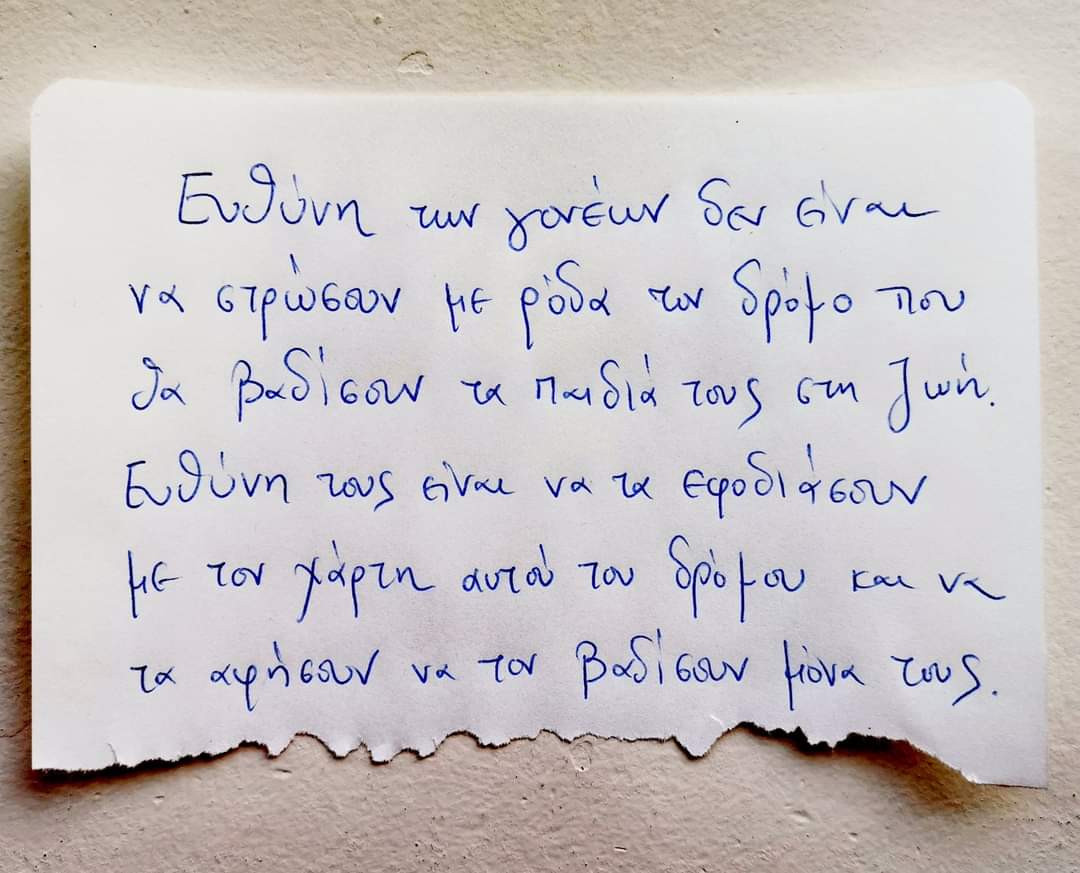 Ευθύνη των γονέων δεν είναι
να στρώσουν με ρόδα τον δρόμο που
θα βαδίσουν τα παιδιά τους στη ζωή.
Ευθύνη τους είναι να τα εφοδιάσουν
με τον χάρτη αυτού του δρόμου και να
τα αφήσουν να τον βαδίσουν μόνα τους.